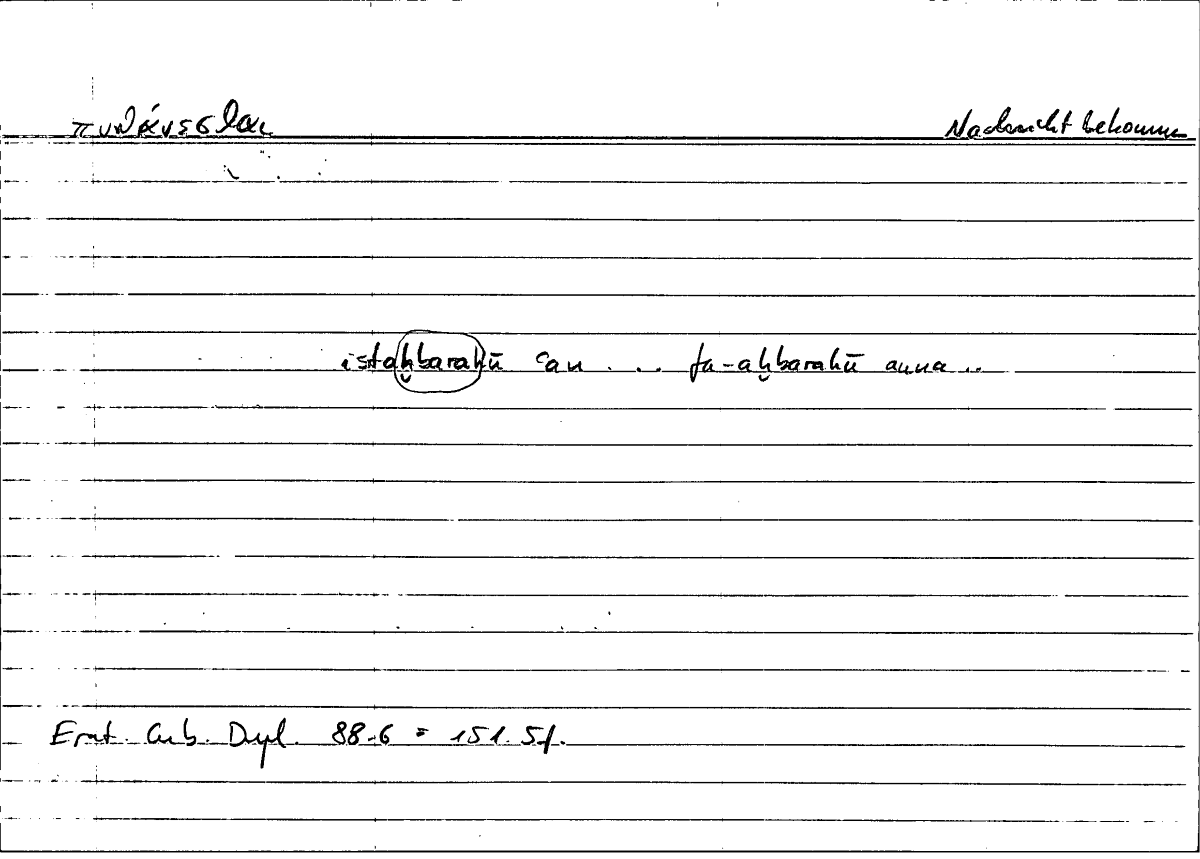 πυνθάνεσθαι Nachricht bekommen
istaḫbarahū ʿan ... fa-aḫbarahū anna ..
Erat. Cub. Dupl. 88.6 = 151.5f.